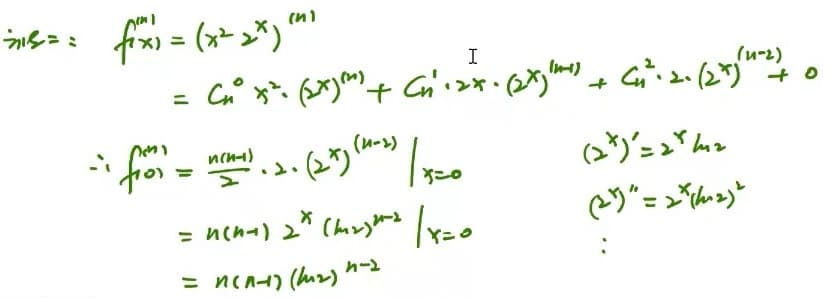 法二: f^{(n)}(x) = (x² 2^x)^{(n)}
= C_n^0 x² · (2^x)^{(n)} + C_n^1 · 2x · (2^x)^{(n-1)} + C_n^2 · 2 · (2^x)^{(n-2)} + 0
∴ f^{(n)}(0) = \frac{n(n-1)}{2} · 2 · (2^x)^{(n-2)} |_{x=0}
(2^x)' = 2^x ln2
= n(n-1) 2^x (ln2)^{n-2} |_{x=0}
(2^x)'' = 2^x (ln2)²
⋮
= n(n-1) (ln2)^{n-2}